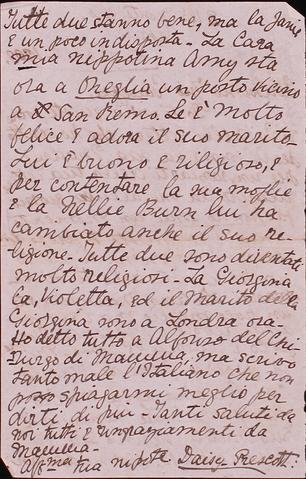 Tutte due stanno bene, ma la Janie
È un poco indisposta - La Cara
mia nippotina Amy sta
ora a Oneglia un posto vicino
a San Remo. Le È molto
felice È adora il suo marito -
Lui È buono È riligioso, È
per contentare la sua moglie
È la Nellie Burn lui ha
cambiato anche il suo re-
ligione - Tutte due sono diventati
molto religiosi - La Giorgina
la, Violetta, ed il marito della
Giorgina sono a Londra ora -
Ho detto tutto a Alfonso del Chi-
-rurgo di Mamma, ma scrivo
tanto male l'Italiano che non
posso spiagarmi meglio per
dirti di più - Tanti saluti da
noi tutti È ringraziamenti da
Mamma -
Aff.ma tua nipote Daisy Prescott.